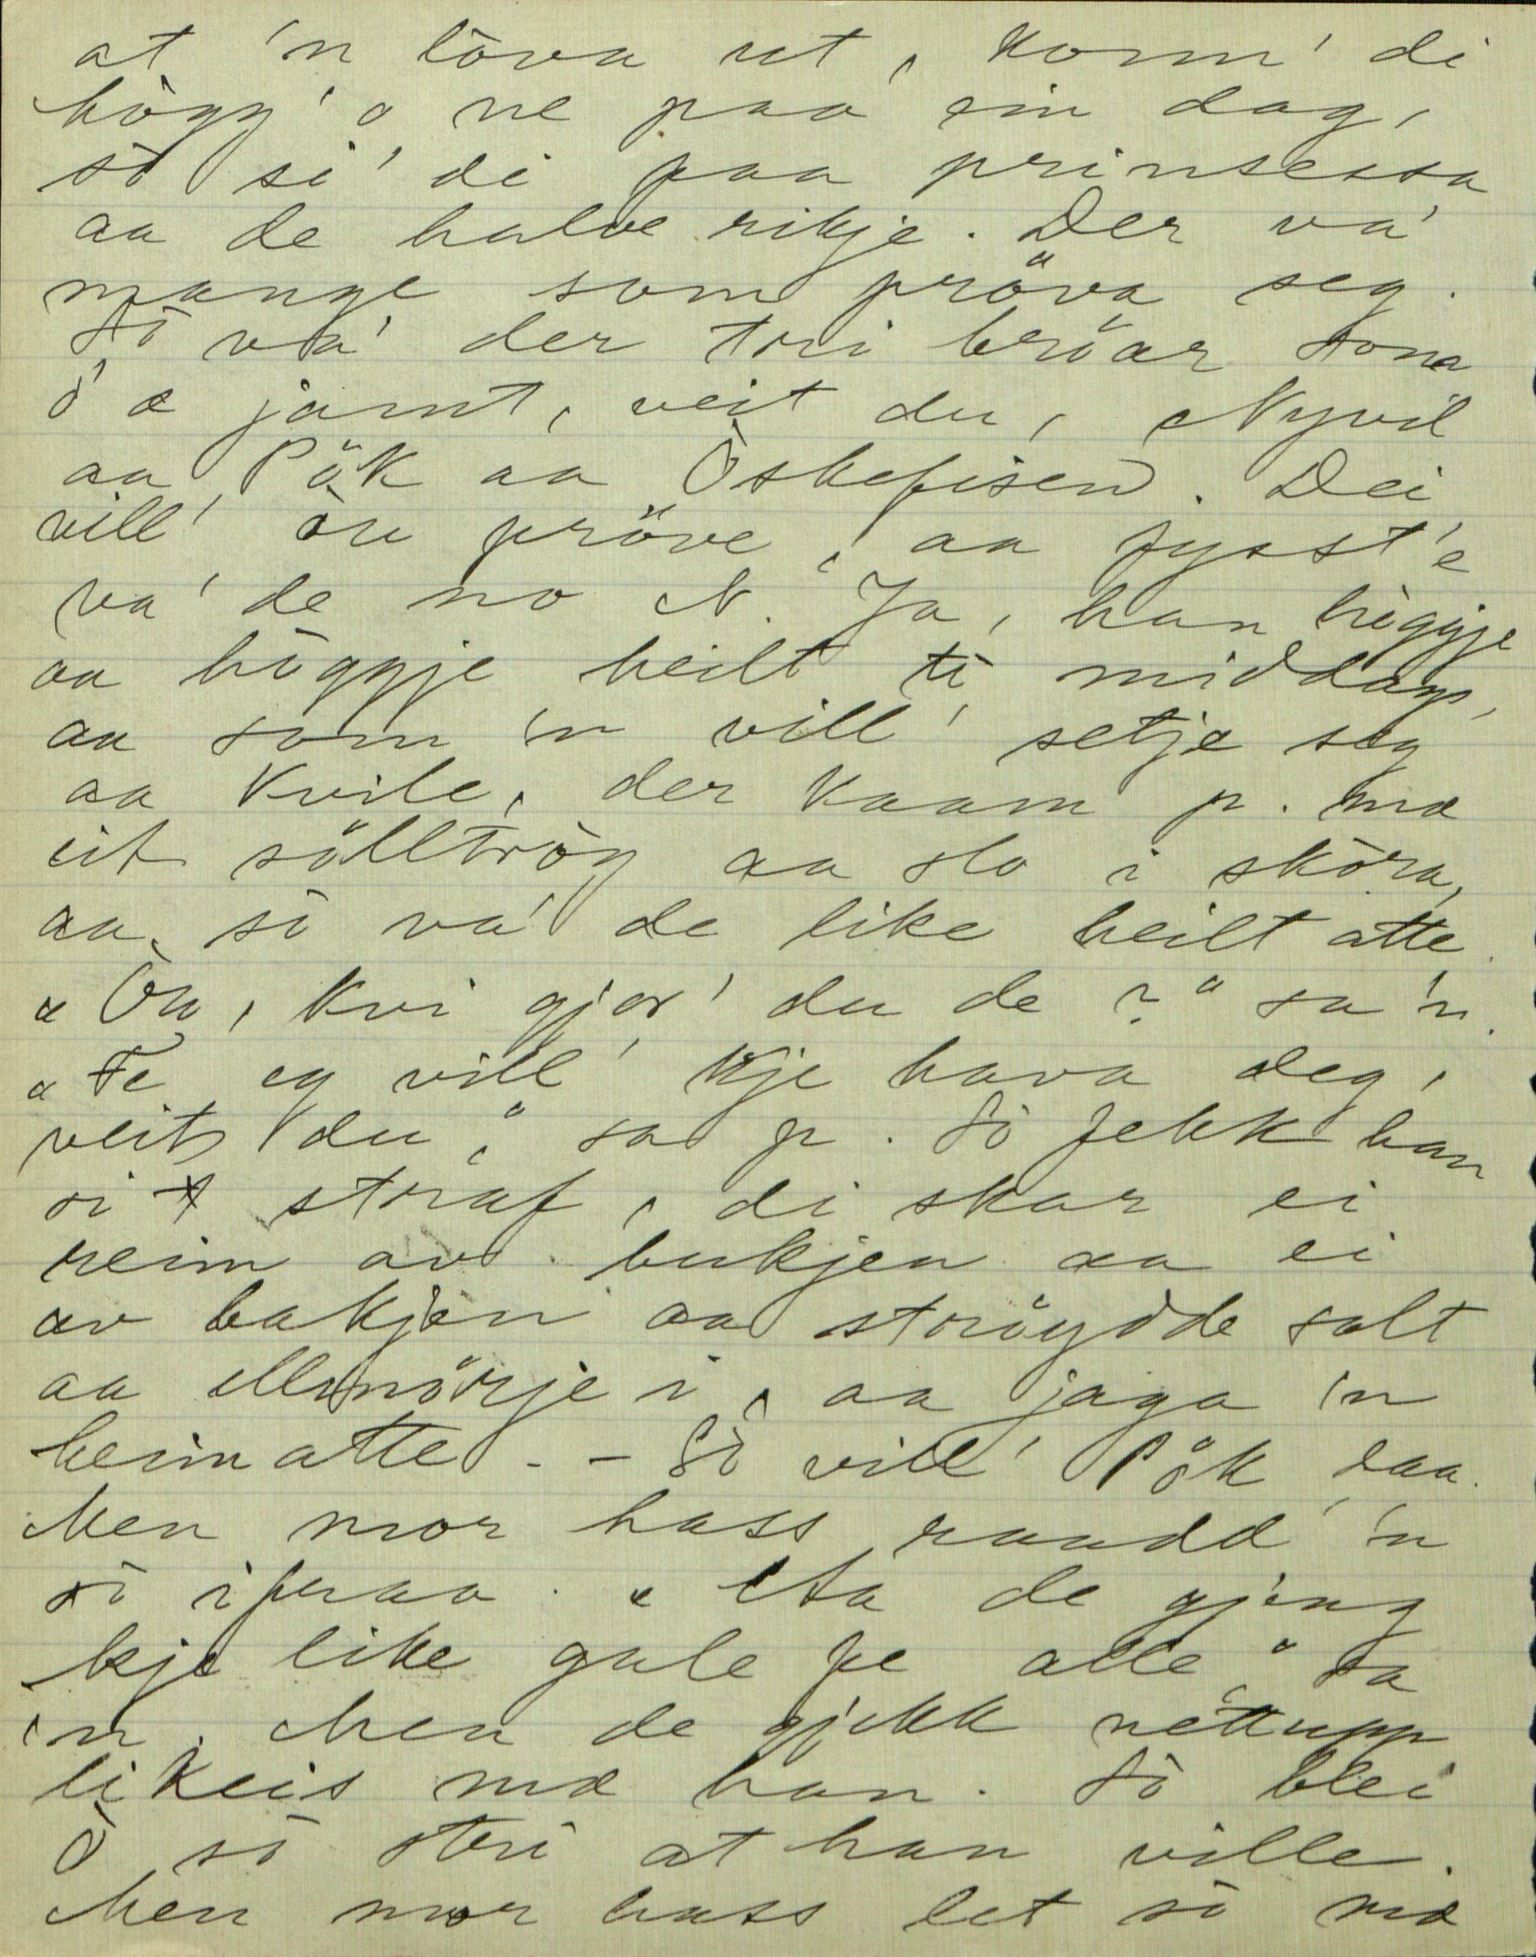 at 'n lòva ut, komm' di
hògg' o ne paa ein dag,
sò si' di paa prinsessa
aa de halve rikje. Der va'
mange som pröva seg.
Sò va' der tri bröar som
ò' æ jamt, veit du, Nyvil
aa Pök aa Òskefisen. Dei
vill' òu pröve, aa fysst'e
va' de no N. Ja, han hòggje
aa hòggje heilt ti middags,
aa som 'n vill' setje seg
aa kvile, der kaam p. mæ
eit sölltròg aa slo i skòra,
aa sò va' de like heilt atte.
"Òu, kvi gjor' du de?" sa 'n.
"Fe eg vill' kje hava deg,
veit du," sa p. Sò fekk han
si straf, di skar ei
reim av bukjen aa ei
av bakjen aa ströydde salt
aa ellmörje i, aa jaga 'n
heim atte. - Sò vill' Pök daa.
Men mor hass raadd' 'n
sò ifraa. "Aa de gjeng
kje like gale fe alle" sa
'n. Men de gjekk nettupp
likeis mæ han. Sò blei
Ò sò stri at han ville.
Men mor hass let sò mæ